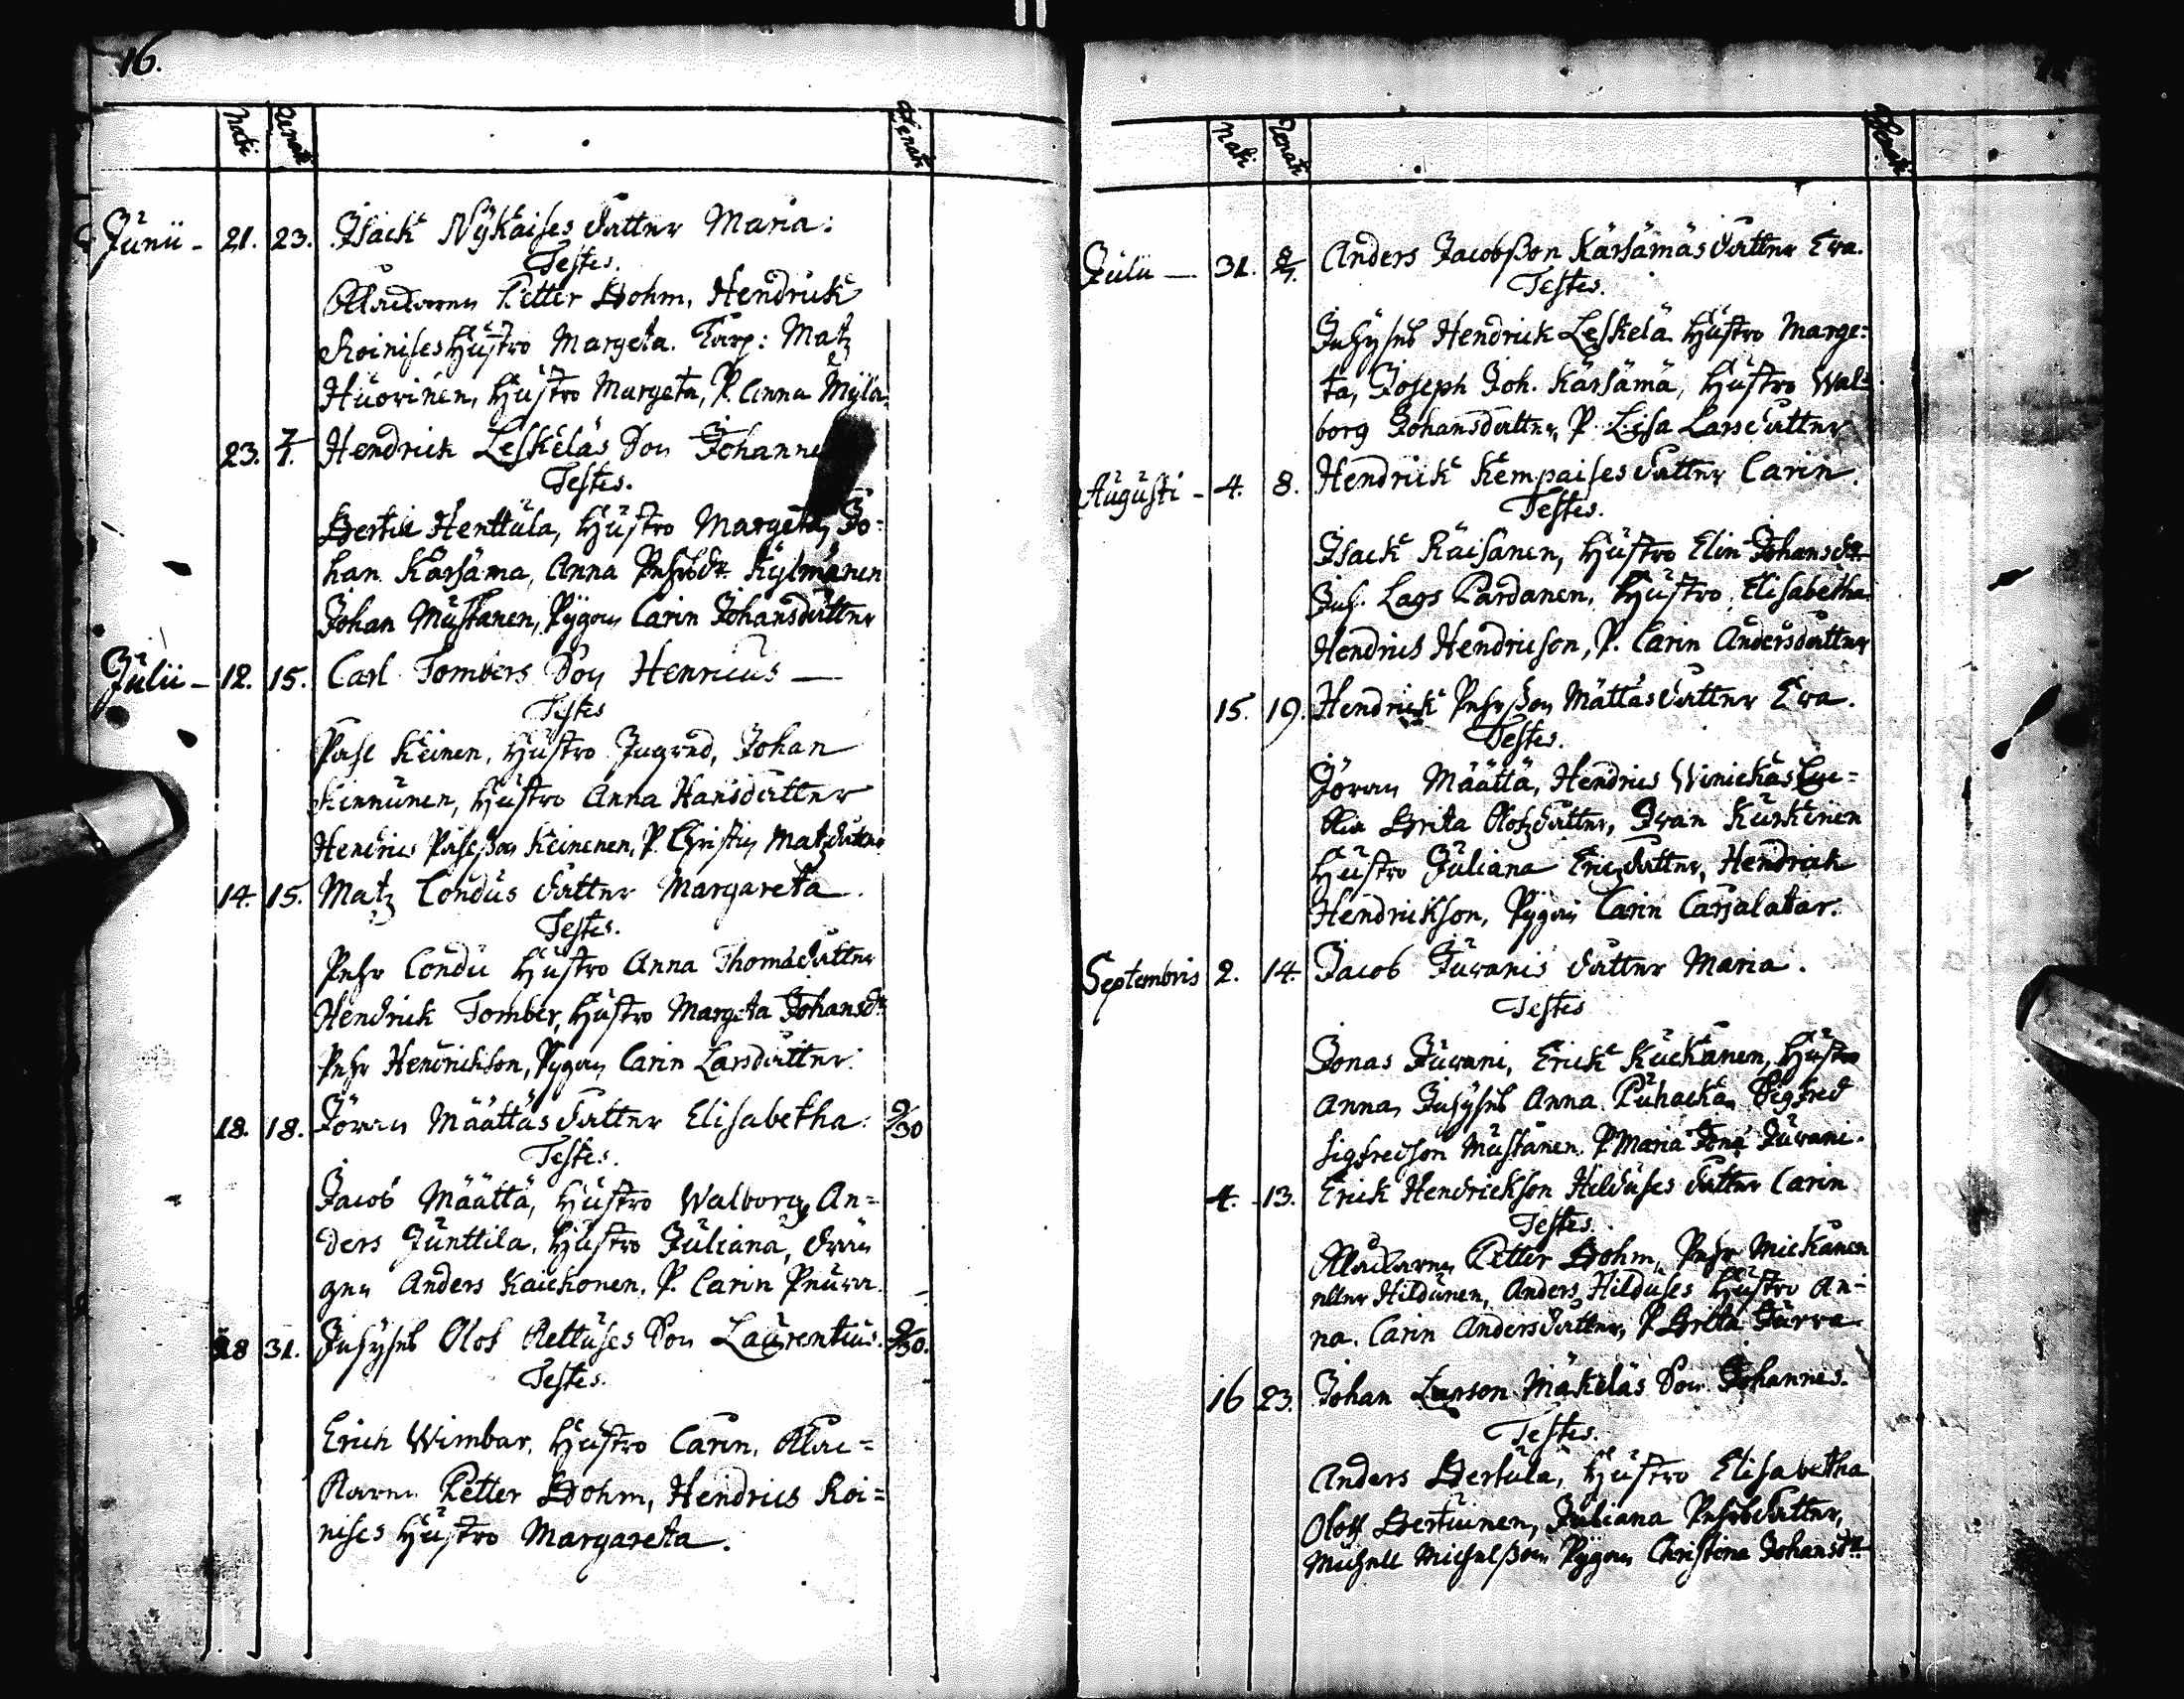 16.
Nati Renati Denati
Junii - 21. 23. Isack Nykaises dotter Maria:
Testes.
Klockaren Petter Bohm, Hendrick
Roinises Hustro Margeta. Corp: Matz
Huovinen, Hustro Margeta, P. Anna Myla
23. 7/1. Hendrich Leskeläs Son Johanne
Testes.
Bertil Henttula, Hustro Margeta, Jo=
han Kärsämä, Anna Pehrsdr. Kylmänen
Johan Mustanen, Pygan Carin Johansdotter
Julii - 12. 15. Carl Tombers Son Henricus —
Testes
Påhl Keinen, Hustro Ingred, Johan
Kinnunen, Hustro Anna Hansdotter
Hendric Påhlsson Keinenen, P. Christin Matzdotter
14. 15. Matz Condus dotter Margareta.
Testes.
Pehr Condu Hustro Anna Thomasdotter
Hendrick Tomber, Hustro Margeta Johansdr
Pehr Hendrichson, Pygan Carin Larsdotter.
18. 18. Jöran Määttäs dotter Elisabetha. 9/30
Testes.
Jacob Määttä, Hustro Walborg, An=
ders Junttila, Hustro Juliana, drän
gen Anders Kaickonen. P. Carin Peura.
28 31. Inhyses Olof Rettuses Son Laurentius. 9/30.
Testes.
Erich Wimbar, Hustro Carin, Kloc=
karen Petter Bohm, Hendrics Roi=
nises Hustro Margareta.
Nati Renati Denati
Julii — 31. 8/7. Anders Jacobsson Kärsämäs dotter Eva.
Testes.
Inhyses Hendrick Leskelä Hustro Marge=
ta, Joseph Joh. Kärsämä, Hustro Wal=
borg Johansdotter, P. Lisa Larsdotter
Augusti - 4. 8. Hendrick Kempaises dotter Carin.
Testes.
Isack Räisänen, Hustro Elin Johansdr
Inh. Lars Pardanen, Hustro Elisabetha
Hendrics Hendricson, P. Carin Andersdotter
15. 19. Hendrick Pehrsson Määttäs dotter Eva.
Testes.
Jöran Määttä, Hendrics Winickas Enc=
kia Brita Olofzdotter, Ivan Kurkinen
Hustro Juliana Ericsdotter, Hendrich
Hendrickson, Pygan Carin Carjalatar.
Septembris 2. 14. Jacob Juvanis dotter Maria.
Testes
Jonas Juvani, Erick Kuckanen, Hustro
Anna, Inhyses Anna Puhacka, Sigfred
Sigfredson Mustanen. P. Maria Jona Juvani.
4. 13. Erick Hendrickson Hilduses dotter Carin
Testes.
Klockaren Petter Bohm, Pehr Mickänen
eller Hildunen, Anders Hilduses Hustro An=
na. Carin Andersdotter, P. Brita Jurva
16 23. Johan Larson Mäkeläs Son Johannes.
Testes.
Anders Bertula, Hustro Elisabetha
Oloff Bertuinen, Juliana Pehrsdotter,
Michell Michelsson Pygan Christina Johansdtr